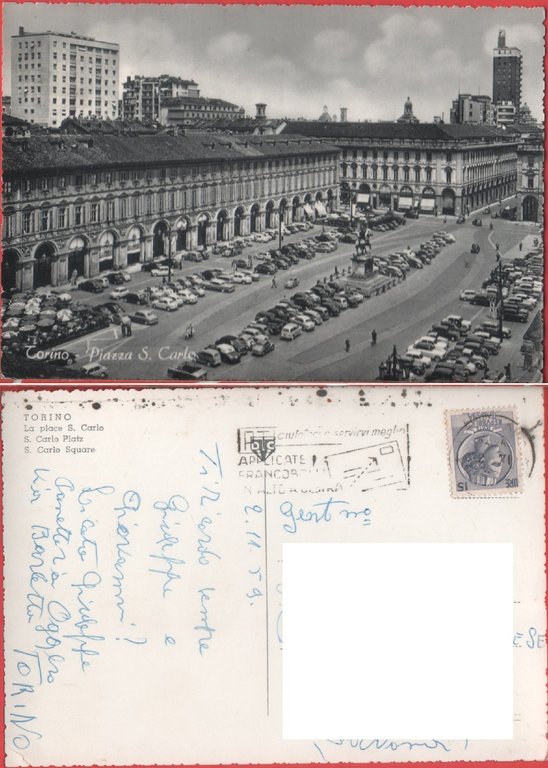 Torino - Piazza S. Carlo
TORINO
La place S. Carlo
S. Carlo Platz
S. Carlo Square
aiutateci a servirvi meglio
APPLICATE
FRANCOBOLLI
IN ALTO A DESTRA
LIRE 15
2.11.59.
Ti ricordo sempre
Giuseppe e
Giovanni
Giuseppe
Via Barletta
TORINO
Gent.mo
ESE
(Savona)